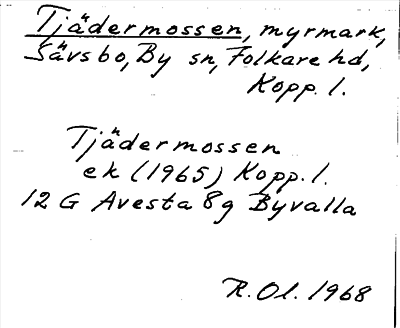 Tjädermossen, myrmark,
Sävsbo, By sn, Folkare hd,
Kopp. l.
Tjädermossen
ek (1965) Kopp. l.
12 G Avesta 8g Byvalla
R. Ol. 1968